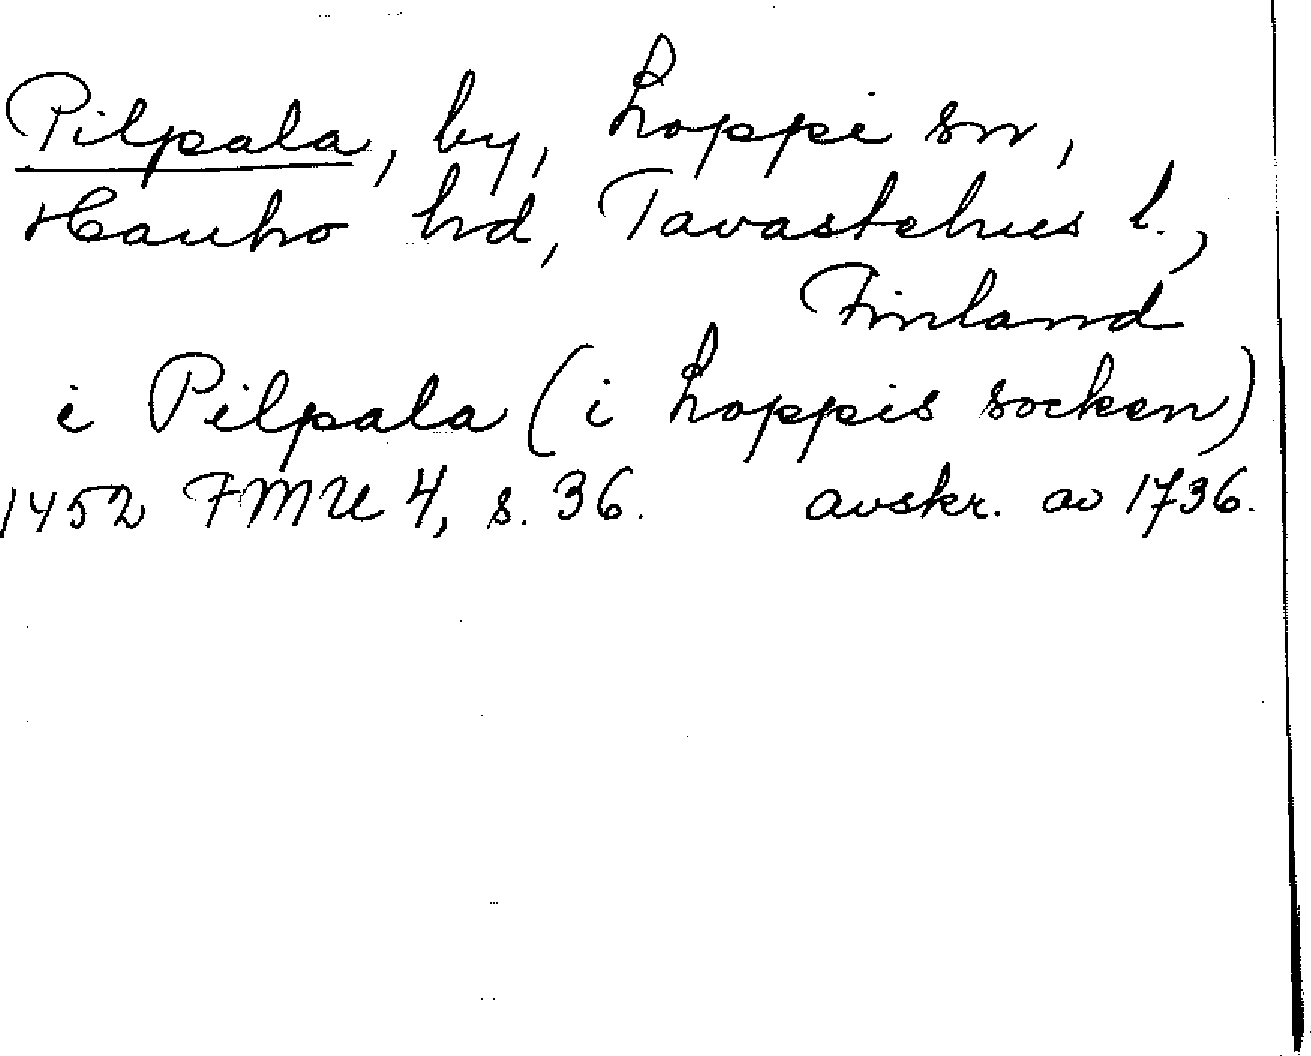 Pilpala, by, Loppi sn,
Hauho hd, Tavastehus l.,
Finland
i Pilpala (i Loppis socken)
1452 FMU 4, s. 36. avskr. av 1736.